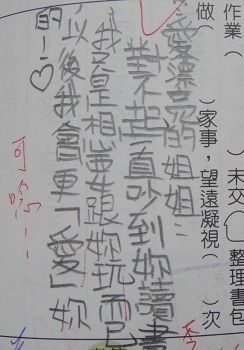 作業（ ）未交（ ）整理書包
做（ ）家事，望遠凝視（ ）次
愛漂亮的姐姐：
對不起一直吵到妳讀書
我只是想要跟妳玩而已
以後我會更「愛」妳
的！♡
可愛！